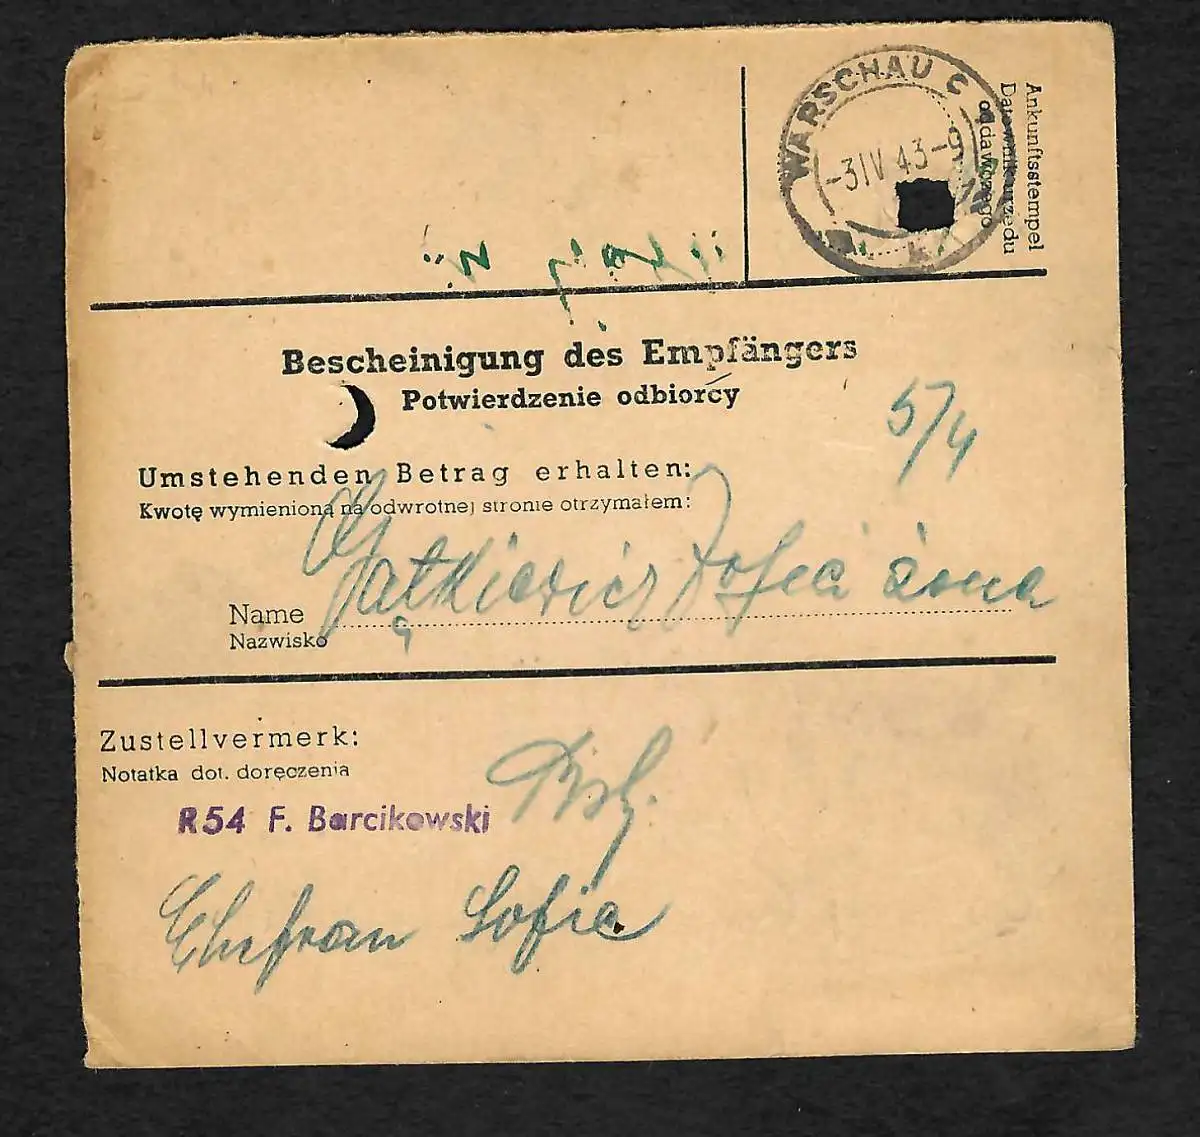 WARSCHAU C
-3IV 43-9
Ankunftsstempel
Datownik urzędu
oddawczego
Bescheinigung des Empfängers
Potwierdzenie odbiorcy
5/4
Umstehenden Betrag erhalten:
Kwotę wymienioną na odwrotnej stronie otrzymałem:
Zofia żona
Name
Nazwisko
Zustellvermerk:
Notatka dot. doręczenia
R54 F. Barcikowski
Ehefrau Sofia